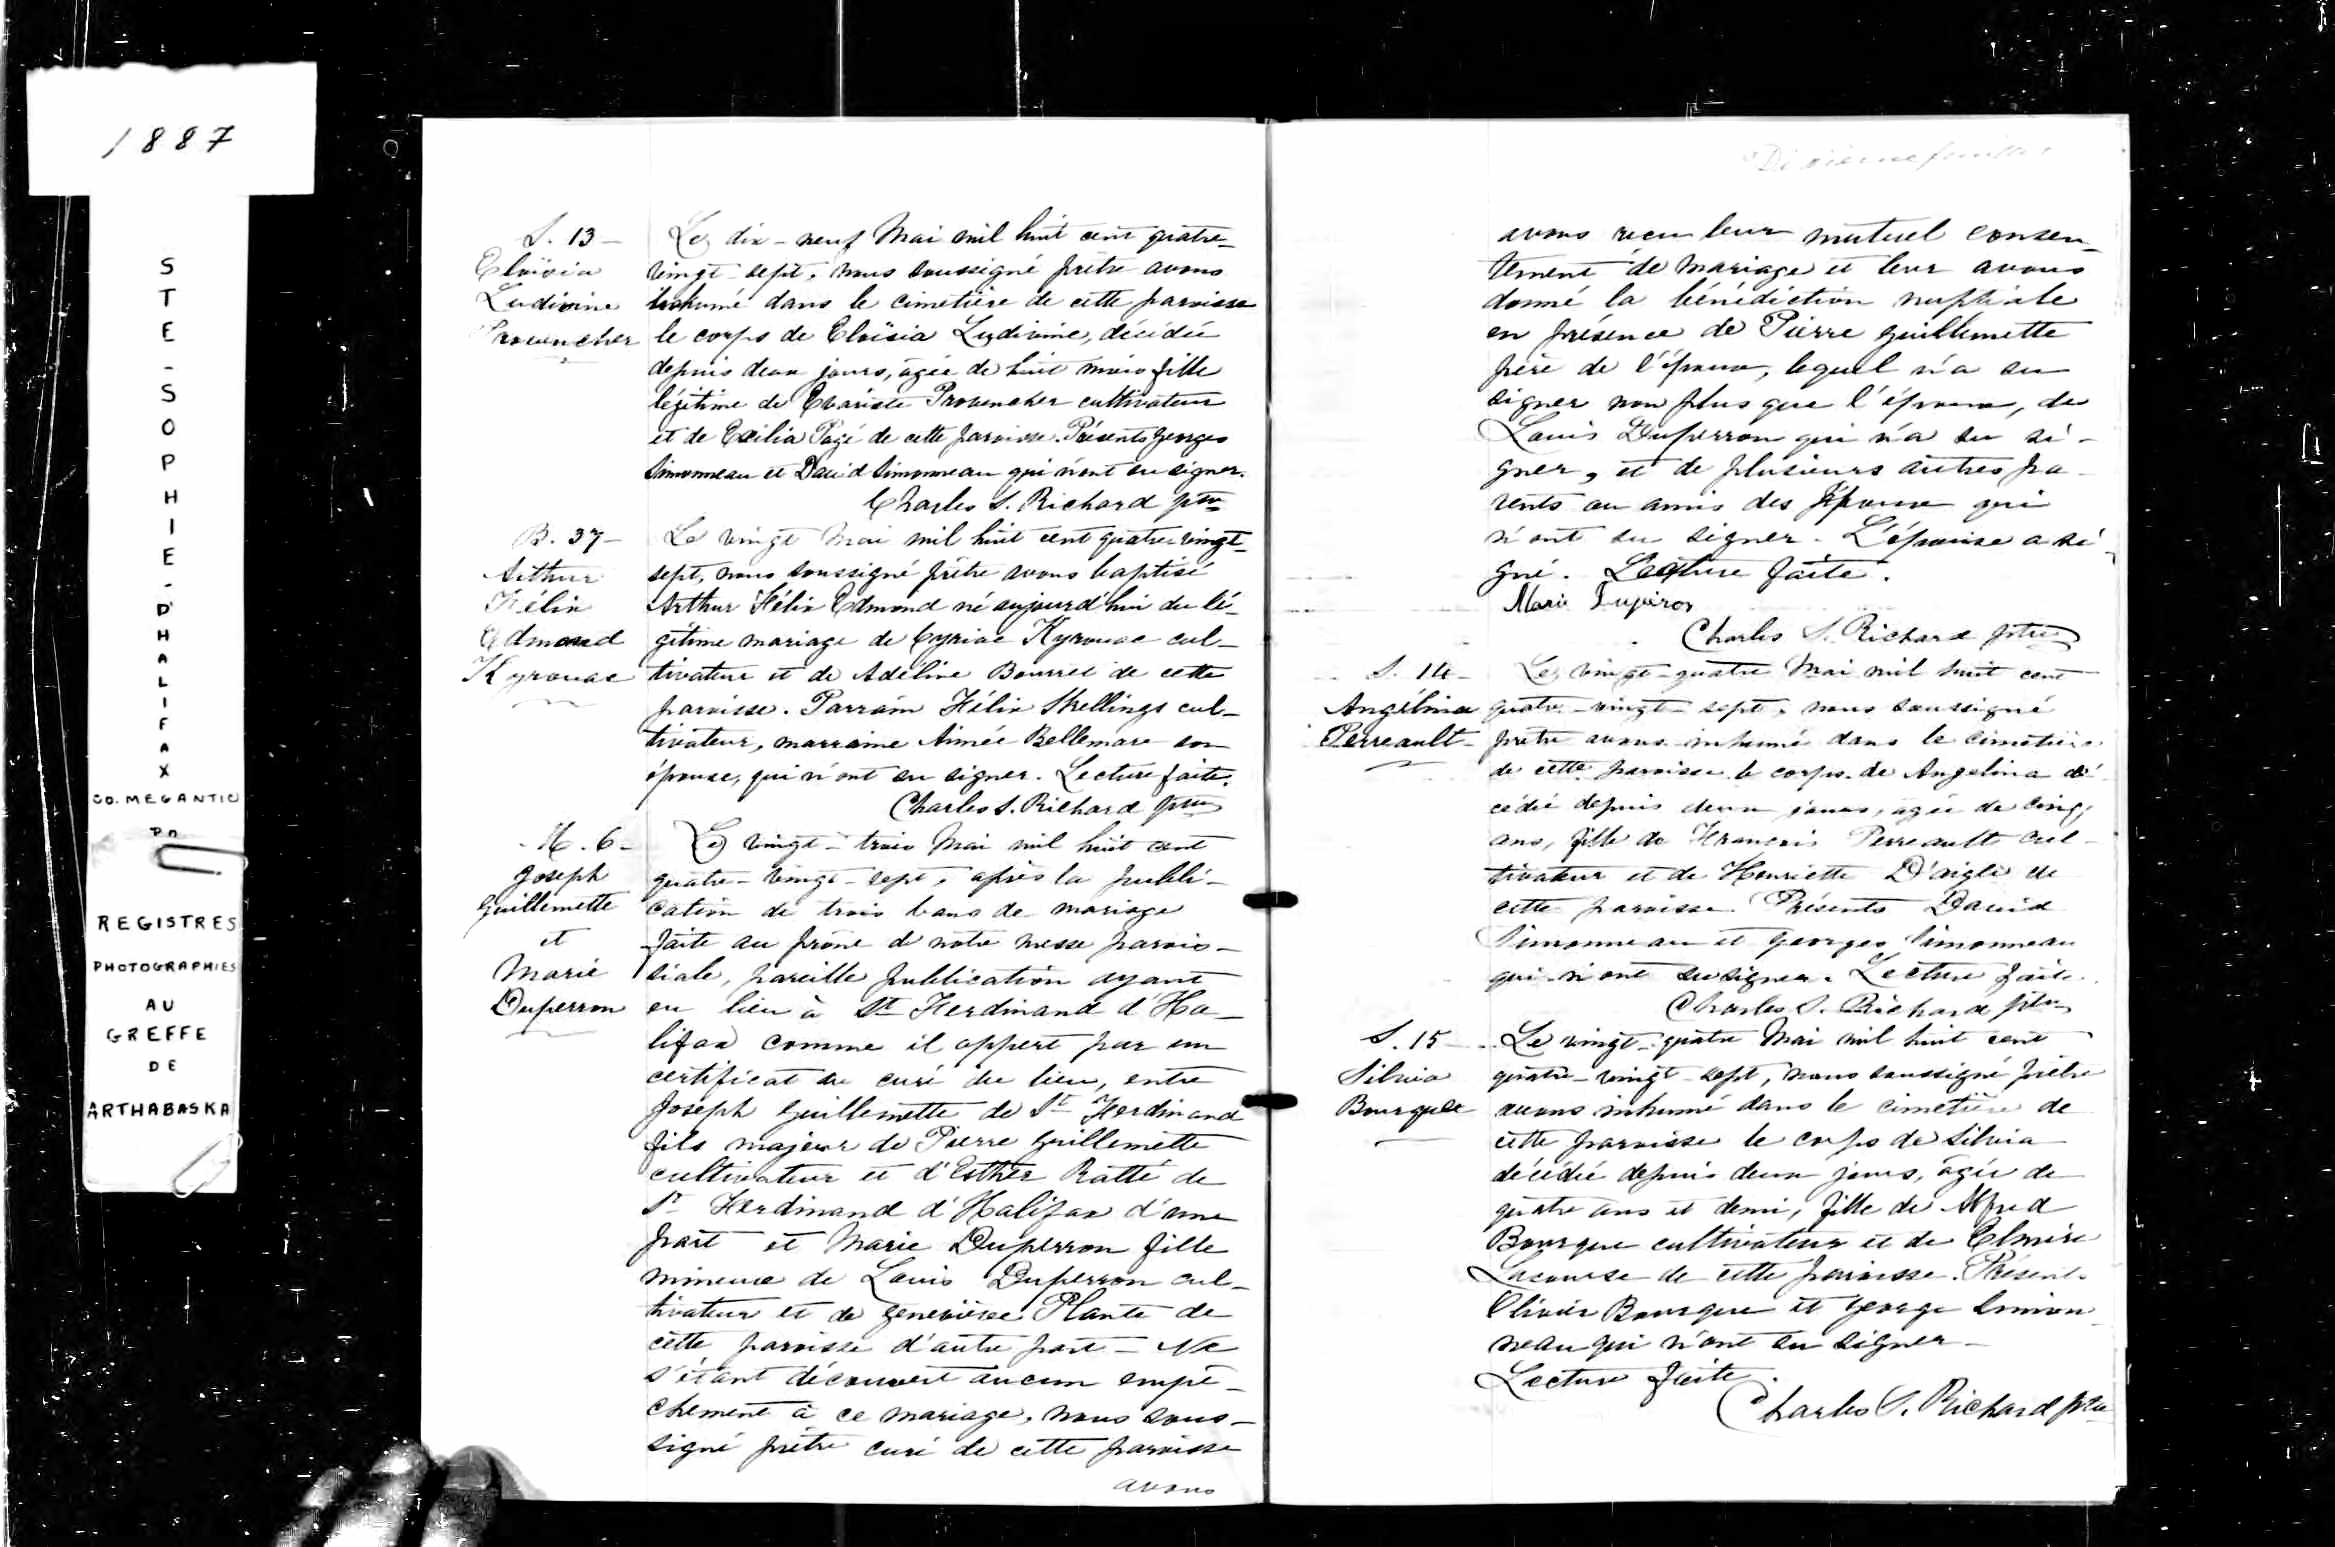 1887
STE-SOPHIE-D'HALIFAX
CO. MEGANTIC
P.Q.
REGISTRES
PHOTOGRAPHIES
AU
GREFFE
DE
ARTHABASKA
S. 13 -
Eloïsia
Ludivine
Provencher
Le dix-neuf Mai mil huit cent quatre-
vingt-sept, nous soussigné prêtre avons
inhumé dans le cimetière de cette paroisse
le corps de Eloïsia Ludivine, décédée
depuis deux jours, agée de huit mois fille
légitime de Evariste Provencher cultivateur
et de Exilia Pagé de cette paroisse. Présents Georges
Simonneau et David Simonneau qui n'ont su signer.
Charles S. Richard ptre
B. 37 -
Arthur
Félix
Edmond
Kyrouac
Le vingt Mai mil huit cent quatre-vingt-
sept, nous soussigné prêtre avons baptisé
Arthur Félix Edmond né aujourd'hui du lé-
gitime mariage de Cyriac Kyrouac cul-
tivateur et de Adéline Bourret de cette
paroisse. Parrain Félix Skellings cul-
tivateur, marraine Aimée Bellemare son
épouse, qui n'ont su signer. Lecture faite.
Charles S. Richard ptre
M. 6 -
Joseph
Guillemette
et
Marie
Duperron
Le vingt-trois Mai mil huit cent
quatre-vingt-sept, après la publi-
cation de trois bans de mariage
faite au prône de notre messe parois-
siale, pareille publication ayant
eu lieu à St Ferdinand d'Ha-
lifax comme il appert par un
certificat du curé du lieu, entre
Joseph Guillemette de St Ferdinand
fils majeur de Pierre Guillemette
cultivateur et d'Esther Ratté de
St Ferdinand d'Halifax d'une
part et Marie Duperron fille
mineure de Louis Duperron cul-
tivateur et de Geneviève Plante de
cette paroisse d'autre part - Ne
s'étant découvert aucun empê-
chement à ce mariage, nous sous-
signé prêtre curé de cette paroisse
avons
avons recu leur mutuel consen-
tement de mariage et leur avons
donné la bénédiction nuptiale
en présence de Pierre Guillemette
père de l'époux, lequel n'a su
signer non plus que l'époux, de
Louis Duperron qui n'a su si-
gner, et de plusieurs autres pa-
rents ou amis des époux qui
n'ont su signer. L'épouse a si-
gné. Lecture faite.
Marie Duperon
Charles S. Richard ptre
S. 14 -
Angélina
Perreault
Le vingt-quatre Mai mil huit cent
quatre-vingt-sept, nous soussigné
prêtre avons inhumé dans le cimetière
de cette paroisse le corps de Angelina dé-
cédée depuis deux jours, agée de cinq
ans, fille de Francois Perreault cul-
tivateur et de Henriette D'aigle de
cette paroisse. Présents David
Simonneau et Georges Simonneau
qui n'ont su signer. Lecture faite.
Charles S. Richard ptre
S. 15 -
Silvia
Bourque
Le vingt-quatre Mai mil huit cent
quatre-vingt-sept, nous soussigné prêtre
avons inhumé dans le cimetière de
cette paroisse le corps de Silvia
décédée depuis deux jours, agée de
quatre ans et demi, fille de Alfred
Bourque cultivateur et de Elmire
Lacourse de cette paroisse. Présents
Olivier Bourque et George Simon-
neau qui n'ont su signer -
Lecture faite.
Charles S. Richard ptre